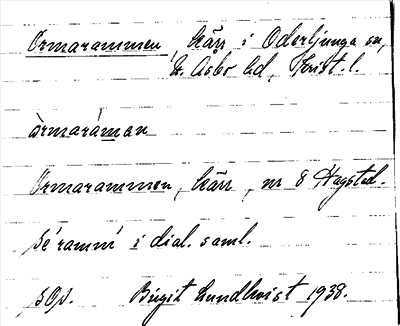 Ormarammen, kärr i Oderljunga sn,
N. Åsbo hd, Krist. l.
àrmaráman
Ormarammen, kärr, nr 8 Hagstad.
se 'ramm' i dial. saml.
sOp. Birgit Lundkvist 1938.